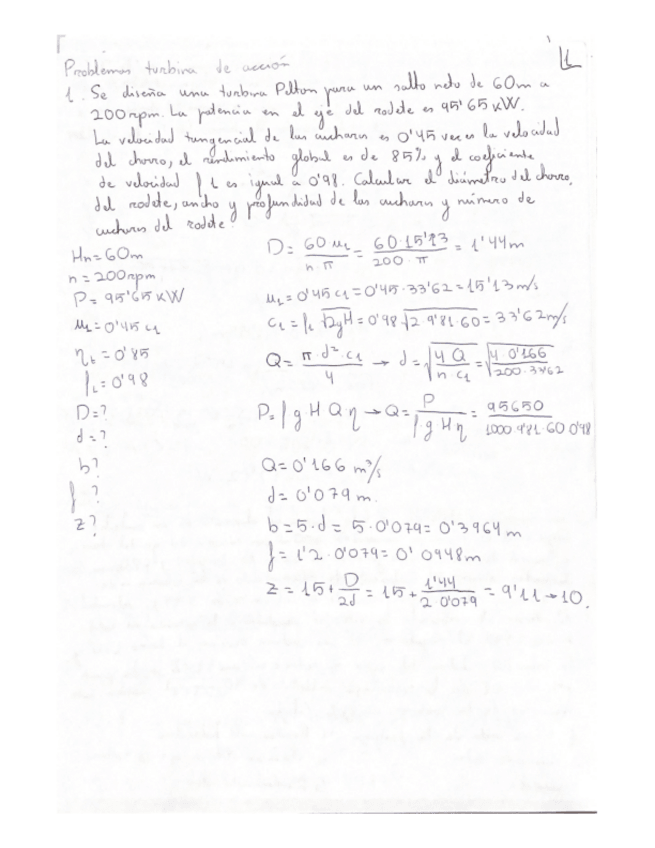 1
Problemas turbina de acción
1. Se diseña una turbina Pelton para un salto neto de 60m a
200rpm. La potencia en el eje del rodete es 95'65 kW.
La velocidad tangencial de las cucharas es 0'45 veces la velocidad
del chorro, el rendimiento global es de 85% y el coeficiente
de velocidad f1 es igual a 0'98. Calcular el diámetro del chorro,
del rodete, ancho y profundidad de las cucharas y número de
cucharas del rodete.
Hn=60m
n=200rpm
P=95'65kW
u1=0'45 c1
ηt=0'85
f1=0'98
D=?
d=?
b?
f?
z?
D= 60 u1 / n·π = 60·15'13 / 200·π = 1'44m
u1=0'45 c1=0'45·33'62=15'13m/s
c1=f1 √2gH=0'98 √2·9'81·60=33'62m/s
Q= π·d²·c1 / 4 → d=√(4Q / n·c1)=√(4·0'166 / 200·3462)
P=ρ g H Q η → Q= P / ρ·g H η = 95650 / 1000·9'81·60·0'98
Q=0'166 m³/s
d=0'079m.
b=5·d=5·0'079=0'3964m
f=1'2·0'079=0'0948m
z=15+ D / 2d = 15+ 1'44 / 2·0'079 = 9'11→10.